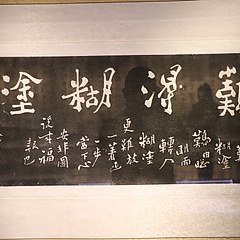 難得糊塗
糊塗
難由聰
明而
轉入
糊塗
更難放
一着退
一步
當下心
安非圖
後來福
報也